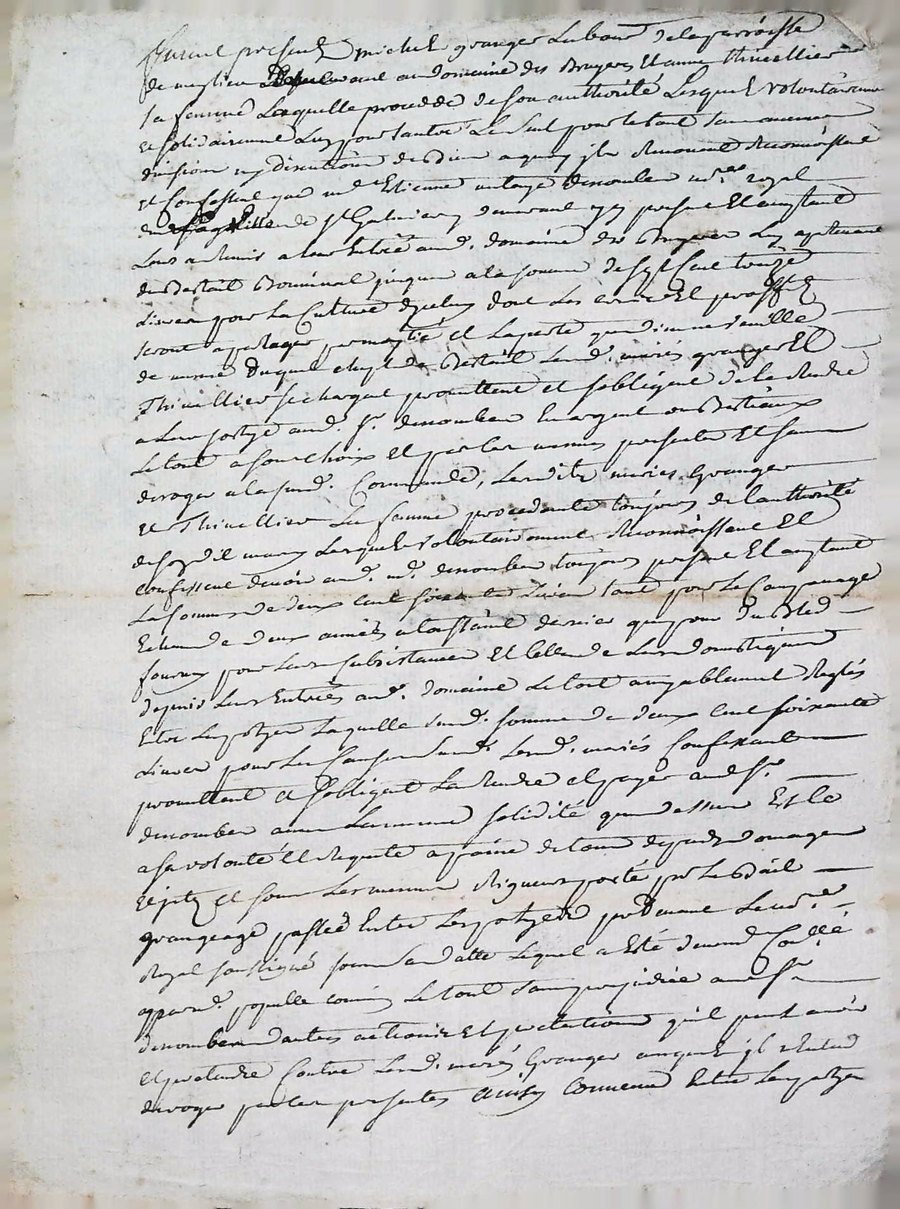 furent presents michel granger Laboureur de la parroisse
de meylieu au domaine des Bruyeres Et anne thivellier
sa femme Laquelle procedde de son authorité Lesquels volontairement
et solidairement Lun pour lautre Le seul pour le tout sans aucune
division ny discution de Biens a quoy ils Renoncent Reconnoissent
et Confessent que me Etienne denombre nre royal
de st Galmier y demeurant icy present Et acceptant
Leurs a remis a leur Entrée aud. domaine des Bruyeres Luy apartenant
du Bestail jusques a la somme de sept cent treize
Livres pour La Culture d'iceluy dont Les et proffit
seront a partager par moytié et La perte
de mesme Duquel cheptel de Bestail Lesd. mariés granger Et
Thivellier se chargent promettent et s'obligent de le Rendre
a Leur sortye aud. sr. denombre En argent ou Bestiaux
Le tout a son choix Et par les mesmes presentes Et sans
deroger a la susd. Commande, Lesdits mariés Granger
et Thivellier La femme procedante toujours de l'authorité
de sond. mary Lesquels volontairement Reconnoissent Et
confessent devoir aud. me. denombre toujours present Et acceptant
La somme de deux cent soixante Livres tant pour Le
de deux années a la st dernier que pour du Bled
fourny pour Leur subsistance Et celle de Leurs domestiques
depuis Leur Entrée aud. domaine Le tout amyablement Reglés
Entre Les partyes Laquelle susd. somme de deux cent soixante
Livres pour Les Causes susd. Lesd. mariés Confessants
promettent et s'obligent La Rendre et payer aud sr.
denombre avec La mesme solidité que dessus Et ce
a sa volonté Et Requete a peine de tous depends domages
et sous Les mesmes Rigueurs porté par Le Bail
grangeage passé Entre Les partyes par devant Le nre.
Royal soussigné sous sa datte Lequel a Esté
Le tout sans prejudice aud sr
denombre d'autres actions Et pretentions qu'il peut avoir
et pretendre Contre Lesd. mariés Granger auxquels il n'Entend
deroger par les presentes ainsy Convenu Entre Les partyes